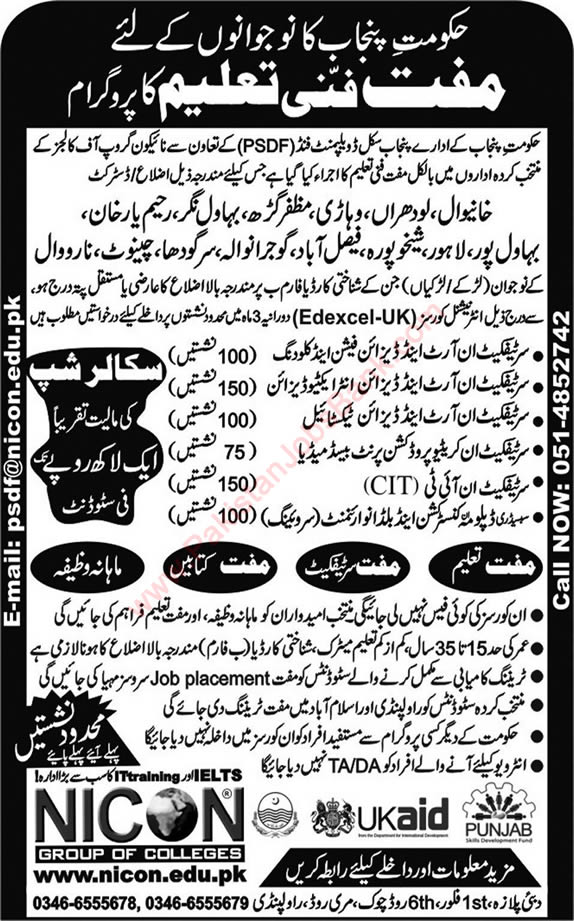 حکومتِ پنجاب کا نوجوانوں کے لئے
مفت فنّی تعلیم کا پروگرام
حکومتِ پنجاب کے ادارے پنجاب سکل ڈویلپمنٹ فنڈ (PSDF) کے تعاون سے نائیکون گروپ آف کالجز کے
منتخب کردہ اداروں میں بالکل مفت فنی تعلیم کا اجراء کیا گیا ہے جس کیلئے مندرجہ ذیل اضلاع/ڈسٹرکٹ
خانیوال، لودھراں، وہاڑی، مظفر گڑھ، بہاول نگر، رحیم یار خان،
بہاول پور، لاہور، شیخوپورہ، فیصل آباد، گوجرانوالہ، سرگودھا، چنیوٹ، نارووال
کے نوجوان (لڑکے/لڑکیاں) جن کے شناختی کارڈ یا فارم ب پر مندرجہ بالا اضلاع کا عارضی یا مستقل پتہ درج ہو،
سے درج ذیل انٹرنیشنل کورسز (Edexcel-UK) دورانیہ 3 ماہ میں محدود نشستوں پر داخلے کیلئے درخواستیں مطلوب ہیں
• سرٹیفکیٹ ان آرٹ اینڈ ڈیزائن فیشن اینڈ کلودنگ (100 نشستیں)
• سرٹیفکیٹ ان آرٹ اینڈ ڈیزائن انٹرایکٹیو ڈیزائن (150 نشستیں)
• سرٹیفکیٹ ان آرٹ اینڈ ڈیزائن ٹیکسٹائل (100 نشستیں)
• سرٹیفکیٹ ان کریٹیو پروڈکشن پرنٹ بیسڈ میڈیا (75 نشستیں)
• سرٹیفکیٹ ان آئی ٹی (CIT) (150 نشستیں)
• سبسڈری ڈپلومہ ان کنسٹرکشن اینڈ بلڈ انوائرنمنٹ (سروئنگ) (100 نشستیں)
سکالرشپ
کی مالیت تقریباً
ایک لاکھ روپے تک
فی سٹوڈنٹ
مفت تعلیم
مفت سرٹیفکیٹ
مفت کتابیں
ماہانہ وظیفہ
• ان کورسز کی کوئی فیس نہیں لی جائیگی منتخب امیدواران کو ماہانہ وظیفہ، اور مفت تعلیم فراہم کی جائیں گی
• عمر کی حد 15 تا 35 سال، کم از کم تعلیم میٹرک، شناختی کارڈ یا (ب فارم) مندرجہ بالا اضلاع کا ہونا لازمی ہے
• ٹریننگ کامیابی سے مکمل کرنے والے سٹوڈنٹس کو مفت Job placement سروسز مہیا کی جائیں گی
• منتخب کردہ سٹوڈنٹس کو راولپنڈی اور اسلام آباد میں مفت ٹریننگ دی جائے گی
• حکومت کے دیگر کسی پروگرام سے مستفید افراد کو ان کورسز میں داخلہ نہیں دیا جائیگا
• انٹرویو کیلئے آنے والے افراد کو TA/DA نہیں دیا جائیگا
محدود نشستیں
پہلے آیئے پہلے پایئے
IELTS اور ITtraining کا سب سے بڑا ادارہ!
NICON®
GROUP OF COLLEGES
www.nicon.edu.pk
0346-6555678, 0346-6555679
UKaid
from the Department for International Development
PUNJAB
Skills Development Fund
مزید معلومات اور داخلے کیلئے رابطہ کریں
دبئی پلازہ، 1st فلور، 6th روڈ چوک، مری روڈ، راولپنڈی
E-mail: psdf@nicon.edu.pk
Call NOW: 051-4852742
www.PakistanJobsBank.com